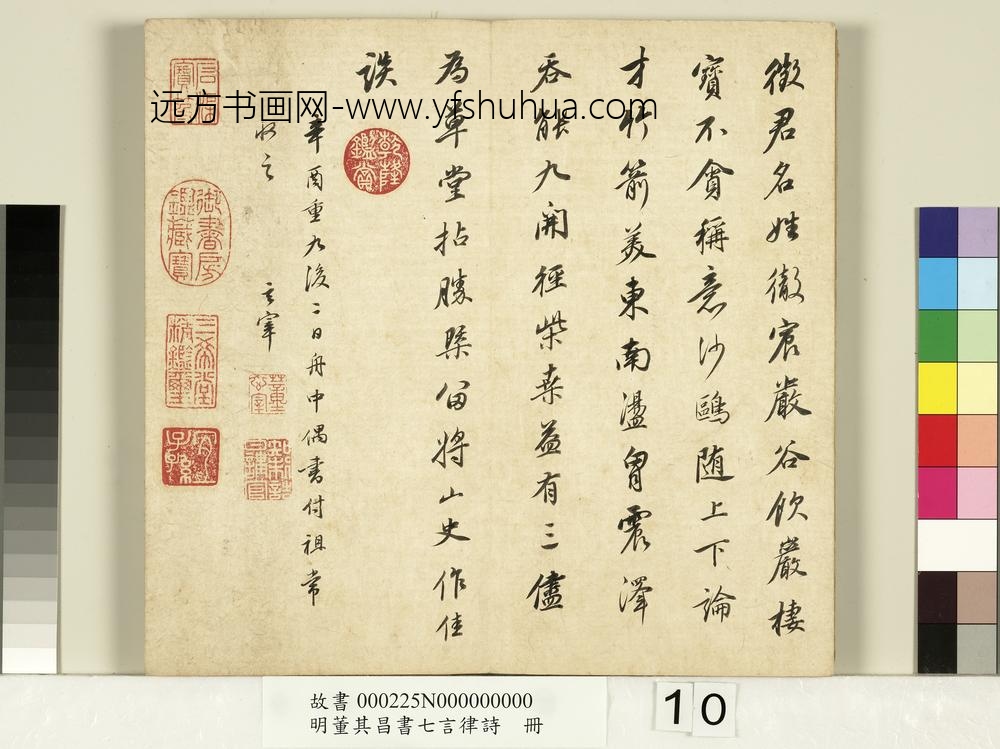 徵君名姓徹宸嚴谷飲巖棲
寶不貪稱意沙鷗随上下論
才竹箭美東南盪胷震澤
吞能九開徑柴桑益有三儘
為草堂拈勝槩留將山史作佳
談
辛酉重九後二日舟中偶書付祖常
收之
其昌
乾隆鑑賞
御書房鑑藏寶
三希堂精鑑璽
宜子孫
远方书画网-www.yfshuhua.com
故書 000225N000000000
明董其昌書七言律詩 冊
10